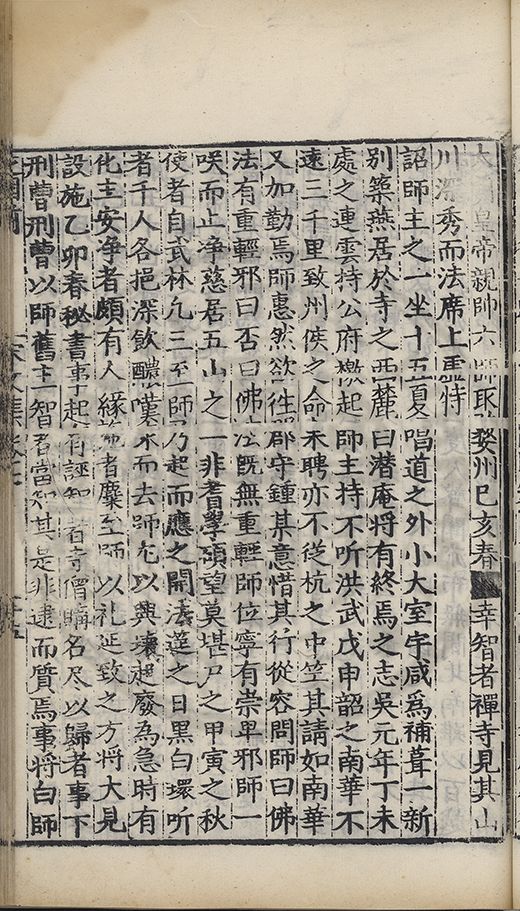 皇帝親帥六師取婺州巳亥春幸智者禪寺見其山
川深秀而法席上虛特
詔師主之一坐十五夏唱道之外小大室宇咸爲補葺一新
别築燕居於寺之西麓曰潜庵將有終焉之志吳元年丁未
處之連雲持公府檄起師主持不听洪武戊申韶之南華不
逺三千里致州侯之命来聘亦不從杭之中竺其請如南華
又加勤焉師惠然欲徃郡守鍾某意惜其行從容問師曰佛
法有重輕邪曰否曰佛法旣無重輕師位寧有崇卑邪師一
咲而止净慈居五山之一非耆學碩望莫堪尸之甲寅之秋
使者自武林凡三至師乃起而應之開法莚之日黑白環听
者千人各挹深飲醲嘆而去師尤以興壞起廢為急時有
化主安净者頗有人緣施者麇至師以礼延致之方將大見
設施乙卯春秘書事起有誣知者寺僧名尽以歸者事下
刑曹刑曹以師舊主智者當知其是非逮而質焉事將白師